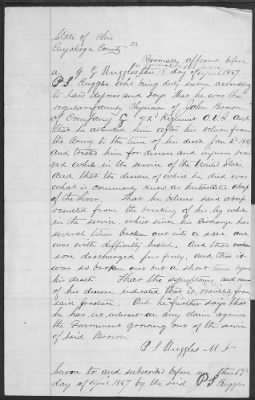 State of Ohio
Cuyahoga County ss
Personally appeared before
me this day of April 1867
P S Ruggles who being duly sworn according
to law deposes and says that he was the
regular family Physician of John Brown
of Company G 42 Regiment O.V.I and
that he attended him after his return from
the army to the time of his death Jan
and treated him for disease
which in the service of the United States
And that the disease of which he died was
what is commonly known as abscess
of the Liver. That he believes said abscess
resulted from the breaking of his leg while
in the service, which since his discharge has
several times broken out into a sore and
was with difficulty healed. And this
sore discharged for finely, and that it
was so broken out but a short time before
his death. That the symptoms and
of his disease indicate that it resulted from
said fracture. And he further says that
he has no interest in any claim against
the Government growing out of the service
of said Brown
P S Ruggles M D
Sworn to and subscribed before me this 19
day of April 1867 by the said P S Ruggles